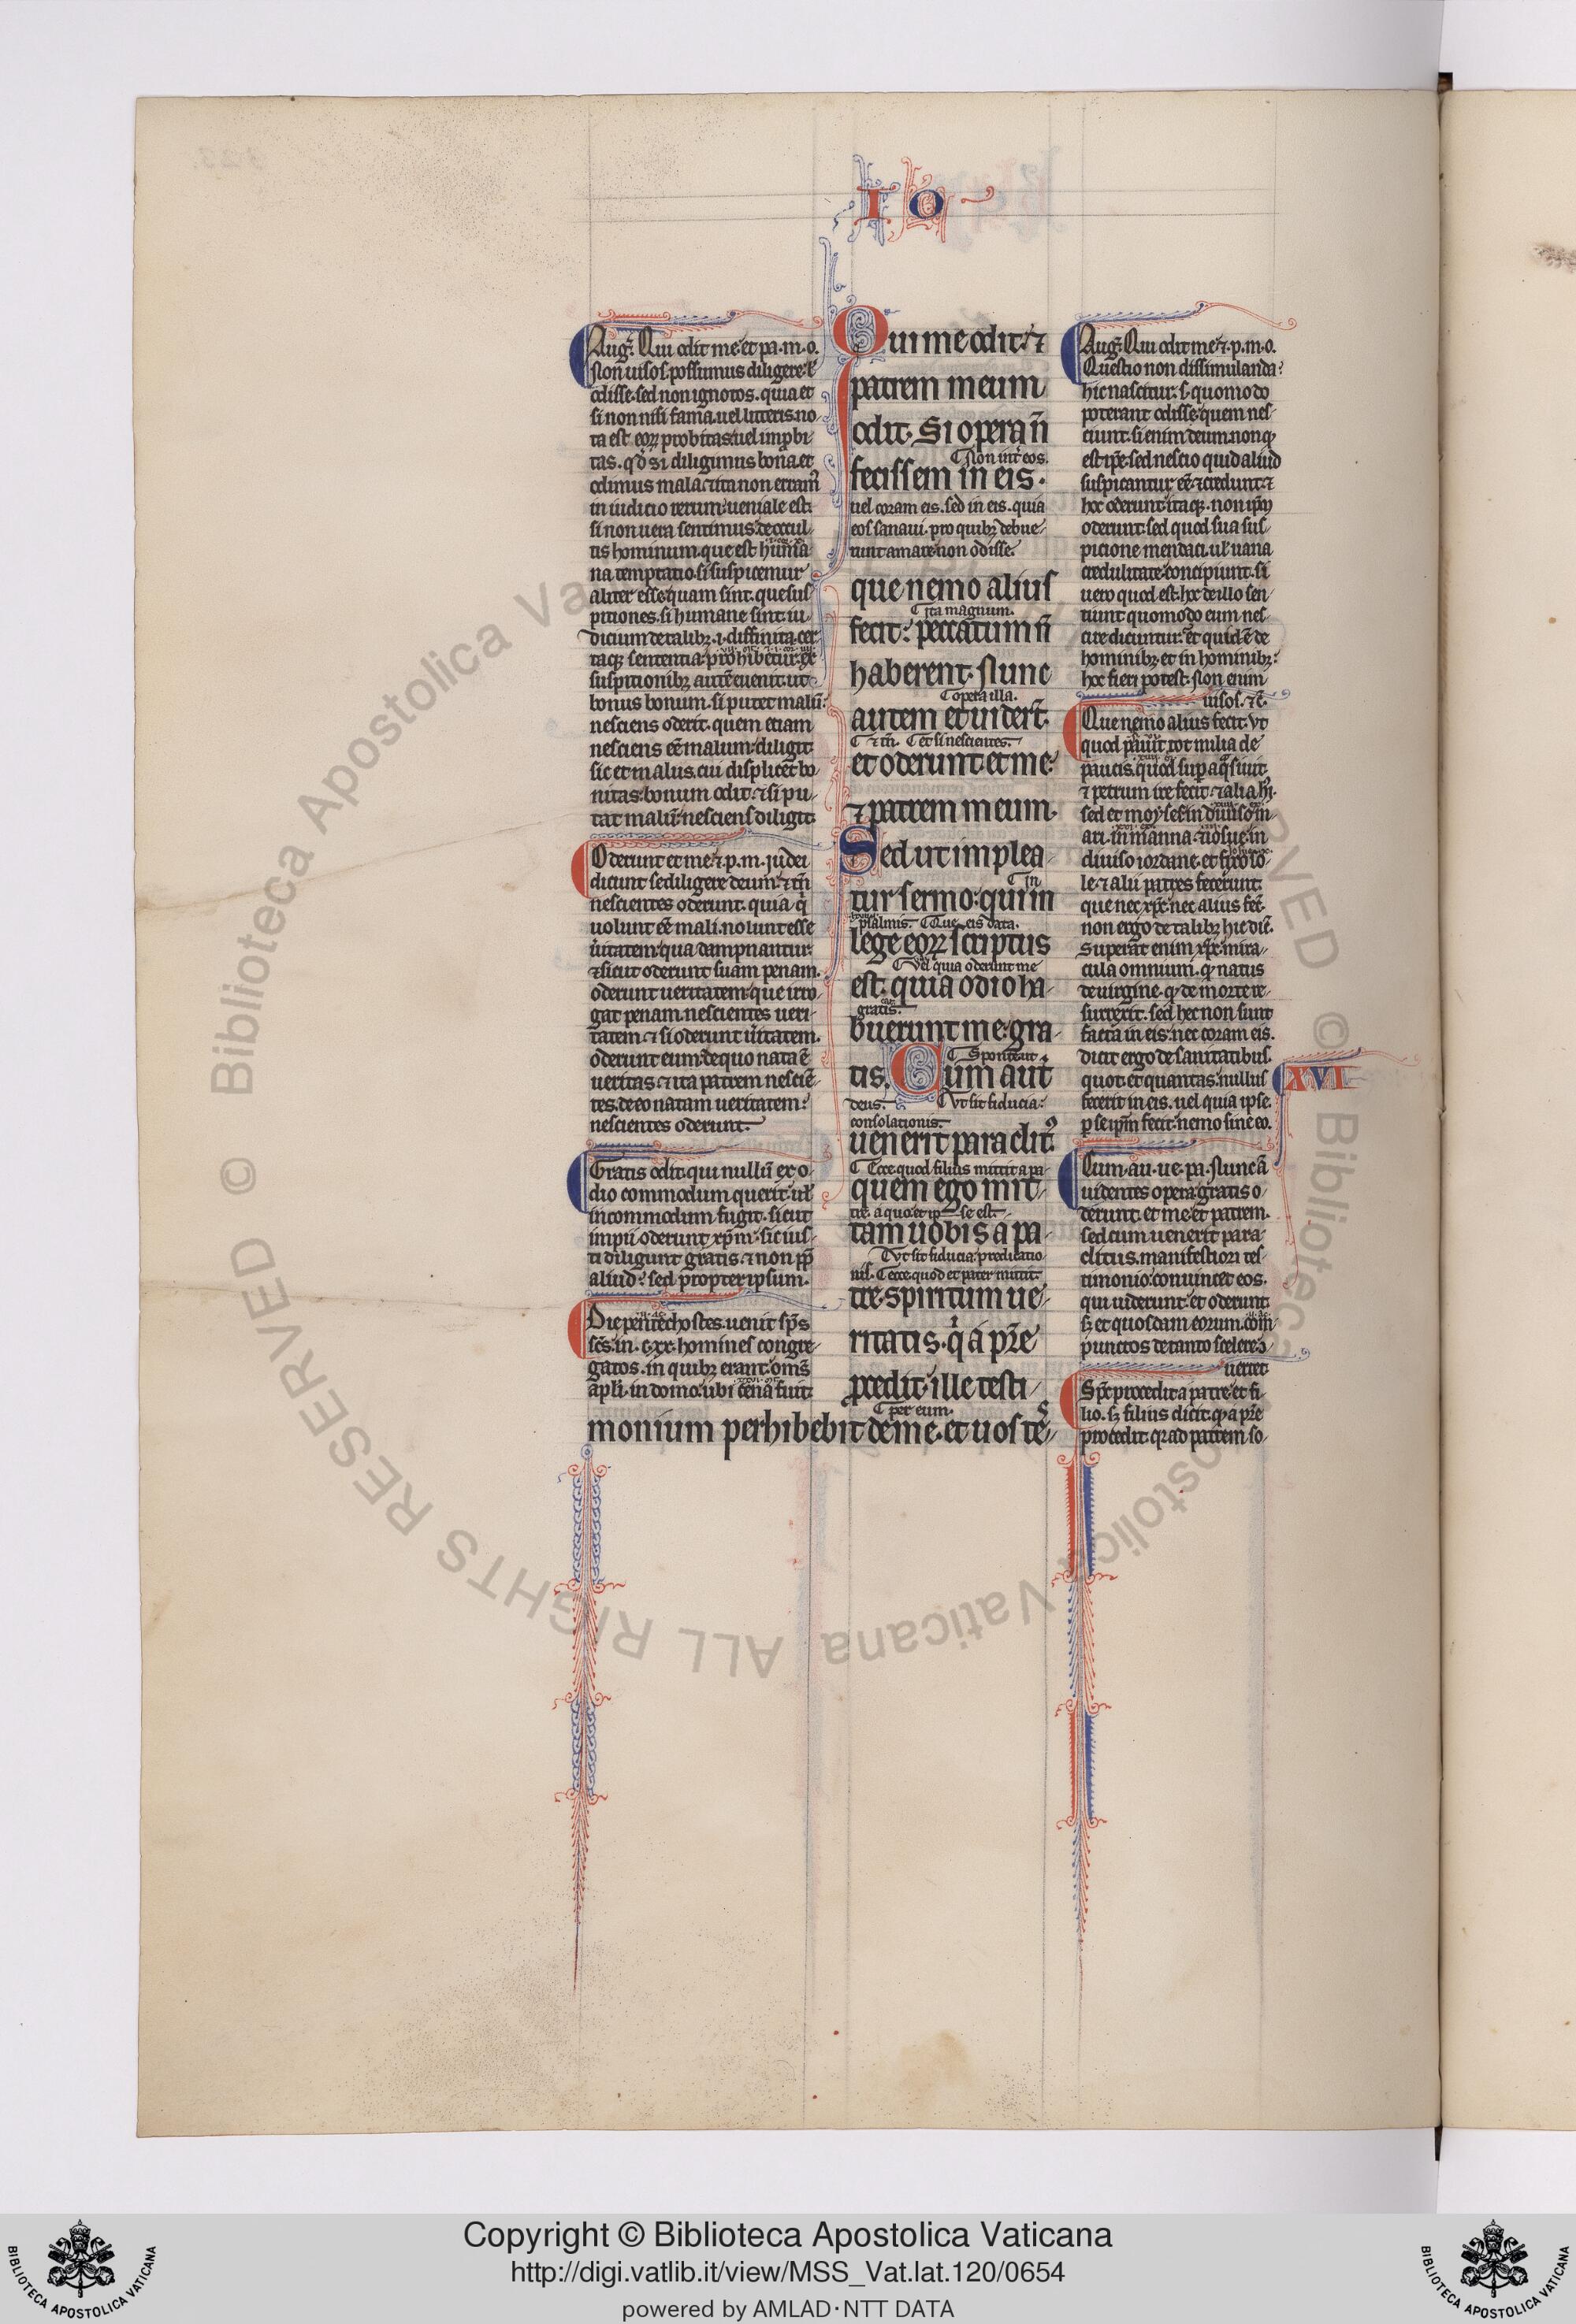 IO
Aug̃. Qui odit me. et pa. m. o.
Non uisos. possumus diligere. ł
odisse. sed non ignotos. quia et
si non nisi fama. uel litteris. no-
ta est eoꝝ probitas. uel inprobi-
tas. qd̓ si diligimus bona. et
odimus mala. ⁊ ita non erram̃
in iudicio rerum. ueniale est.
si non uera sentimus. de occul-
tis hominum. que est huma-
na temptatio. si suspicemur
aliter esse. quam sint. que sus-
pitiones. si humane sint. iu-
dicium de talibꝫ. i. diffinita. cer-
taqꝫ sententia. prohibetur. ex
suspitionibꝫ autẽ euenit. ut
bonus bonum. si putet malũ.
nesciens oderit. quem etiam
nesciens eẽ malum. diligit.
sic et malus. cui displicet bo-
nitas. bonum odit. ⁊ si pu-
tat malũ. nesciens diligit.
Oderunt et me. ⁊. p. m. judei
dicunt se diligere deum. ⁊ tñ
nescientes oderunt. quia q̓
uolunt eẽ mali. nolunt esse
ũitatem. qua dampnantur.
⁊ sicut oderunt suam penam.
oderunt ueritatem. que irro-
gat penam. nescientes ueri-
tatem. ⁊ si oderunt ũitatem.
oderunt eum. de quo nata ẽ
ueritas. ⁊ ita patrem nesciẽ-
tes. de eo natam ueritatem.
nescientes oderunt.
Gratis odit. qui nullũ ex o-
dio commodum querit. uł
incommodum fugit. sicut
impii oderunt xp̃m. sic ius-
ti diligunt gratis. ⁊ non pp̃
aliud. sed propter ipsum.
Die pentechostes. uenit sp̃s
sc̃s. in. c. xx. homines congre-
gatos. in quibꝫ erant. om̃s
apłi. in domo. ubi cena fuit.
Qui me odit. ⁊
patrem meum
odit. Si opera ñ
Non int̓ eos.
fecissem in eis.
uel coram eis. sed in eis. quia
eos sanaui. pro quibꝫ debue-
runt amare. non odisse.
que nemo alius
ita magnum.
fecit. peccatum ñ
haberent. Nunc
opera illa.
autem et uider̃t.
⁊ tñ. Et si nescientes.
et oderunt et me.
⁊ patrem meum.
Sed ut implea-
In
tur sermo. qui in
psalmis. Que eis data.
lege eoꝝ scriptus
Vel quia oderunt me
est. quia odio ha-
gratis.
buerunt me. gra-
tis. Cum aut̃
deus. Vt sit fiducia.
consolationis.
uenerit paraclit⁹.
Ecce. quod filius mittit a pa-
quem ego mit-
tre. a quo. et ip̃se est.
tam uobis a pa-
Vt sit fiducia. predicatio-
nis. Ecce. quod et pater mittit.
tre. spiritum ue-
ritatis. q̓ a pr̃e
procedit. ille testi-
per eum.
monium perhibebit de me. et uos te-
Aug̃. Qui odit me. ⁊. p. m. o.
Questio non dissimulanda.
hic nascitur. s. quomodo
poterant odisse. quem nes-
ciunt. si enim deum. non qꝫ
est ip̃e. sed nescio quid aliud
suspicantur eẽ. ⁊ credunt. ⁊
hoc oderunt. itaqꝫ. non ip̃m
oderunt. sed quod sua sus-
picione mendaci. uł uana
credulitate. concipiunt. si
uero quod est. hoc de illo sen-
tiunt. quomodo eum nes-
cire dicuntur. et quidẽ de
hominibꝫ. et in hominibꝫ.
hoc fieri potest. Non enim
uisos. ⁊c̃.
Que nemo alius fecit. vt
quod pauit. tot milia de
paucis. quod sup̃ aq̃s iuit.
⁊ petrum ire fecit. ⁊ alia h̓i.
sed et moyses. in diuiso m-
ari. in manna. iosue. in
diuiso iordane. et fixo so-
le. ⁊ alii patres fecerunt.
que nec xp̃c. nec alius fec̃.
non ergo de talibꝫ hic dic̃.
Superãt enim xp̃c. mira-
cula omnium. qꝫ natus
de uirgine. qꝫ de morte re-
surrexit. sed hec non sunt
facta in eis. nec coram eis.
dicit ergo de sanitatibus.
quot. et quantas. nullus
fecerit in eis. uel quia ipse.
ꝑ seip̃m fecit. nemo sine eo.
XVI
Cum. au. ue. pa. Nunc ã
uidentes opera. gratis o-
derunt. et me. et patrem.
sed cum uenerit para-
clitus. manifestiori tes-
timonio. conuincet eos.
qui uiderunt. et oderunt.
sꝫ et quosdam eorum. com-
punctos de tanto scelere. ɔ-
uertet
Sp̃c procedit a patre. et fi-
lio. sꝫ filius dicit. qꝫ a pr̃e
procedit. qꝛ ad patrem so-
© Biblioteca Apostolica Vaticana ALL RIGHTS RESERVED
Copyright © Biblioteca Apostolica Vaticana
http://digi.vatlib.it/view/MSS_Vat.lat.120/0654
powered by AMLAD·NTT DATA
BIBLIOTECA APOSTOLICA VATICANA
BIBLIOTECA APOSTOLICA VATICANA